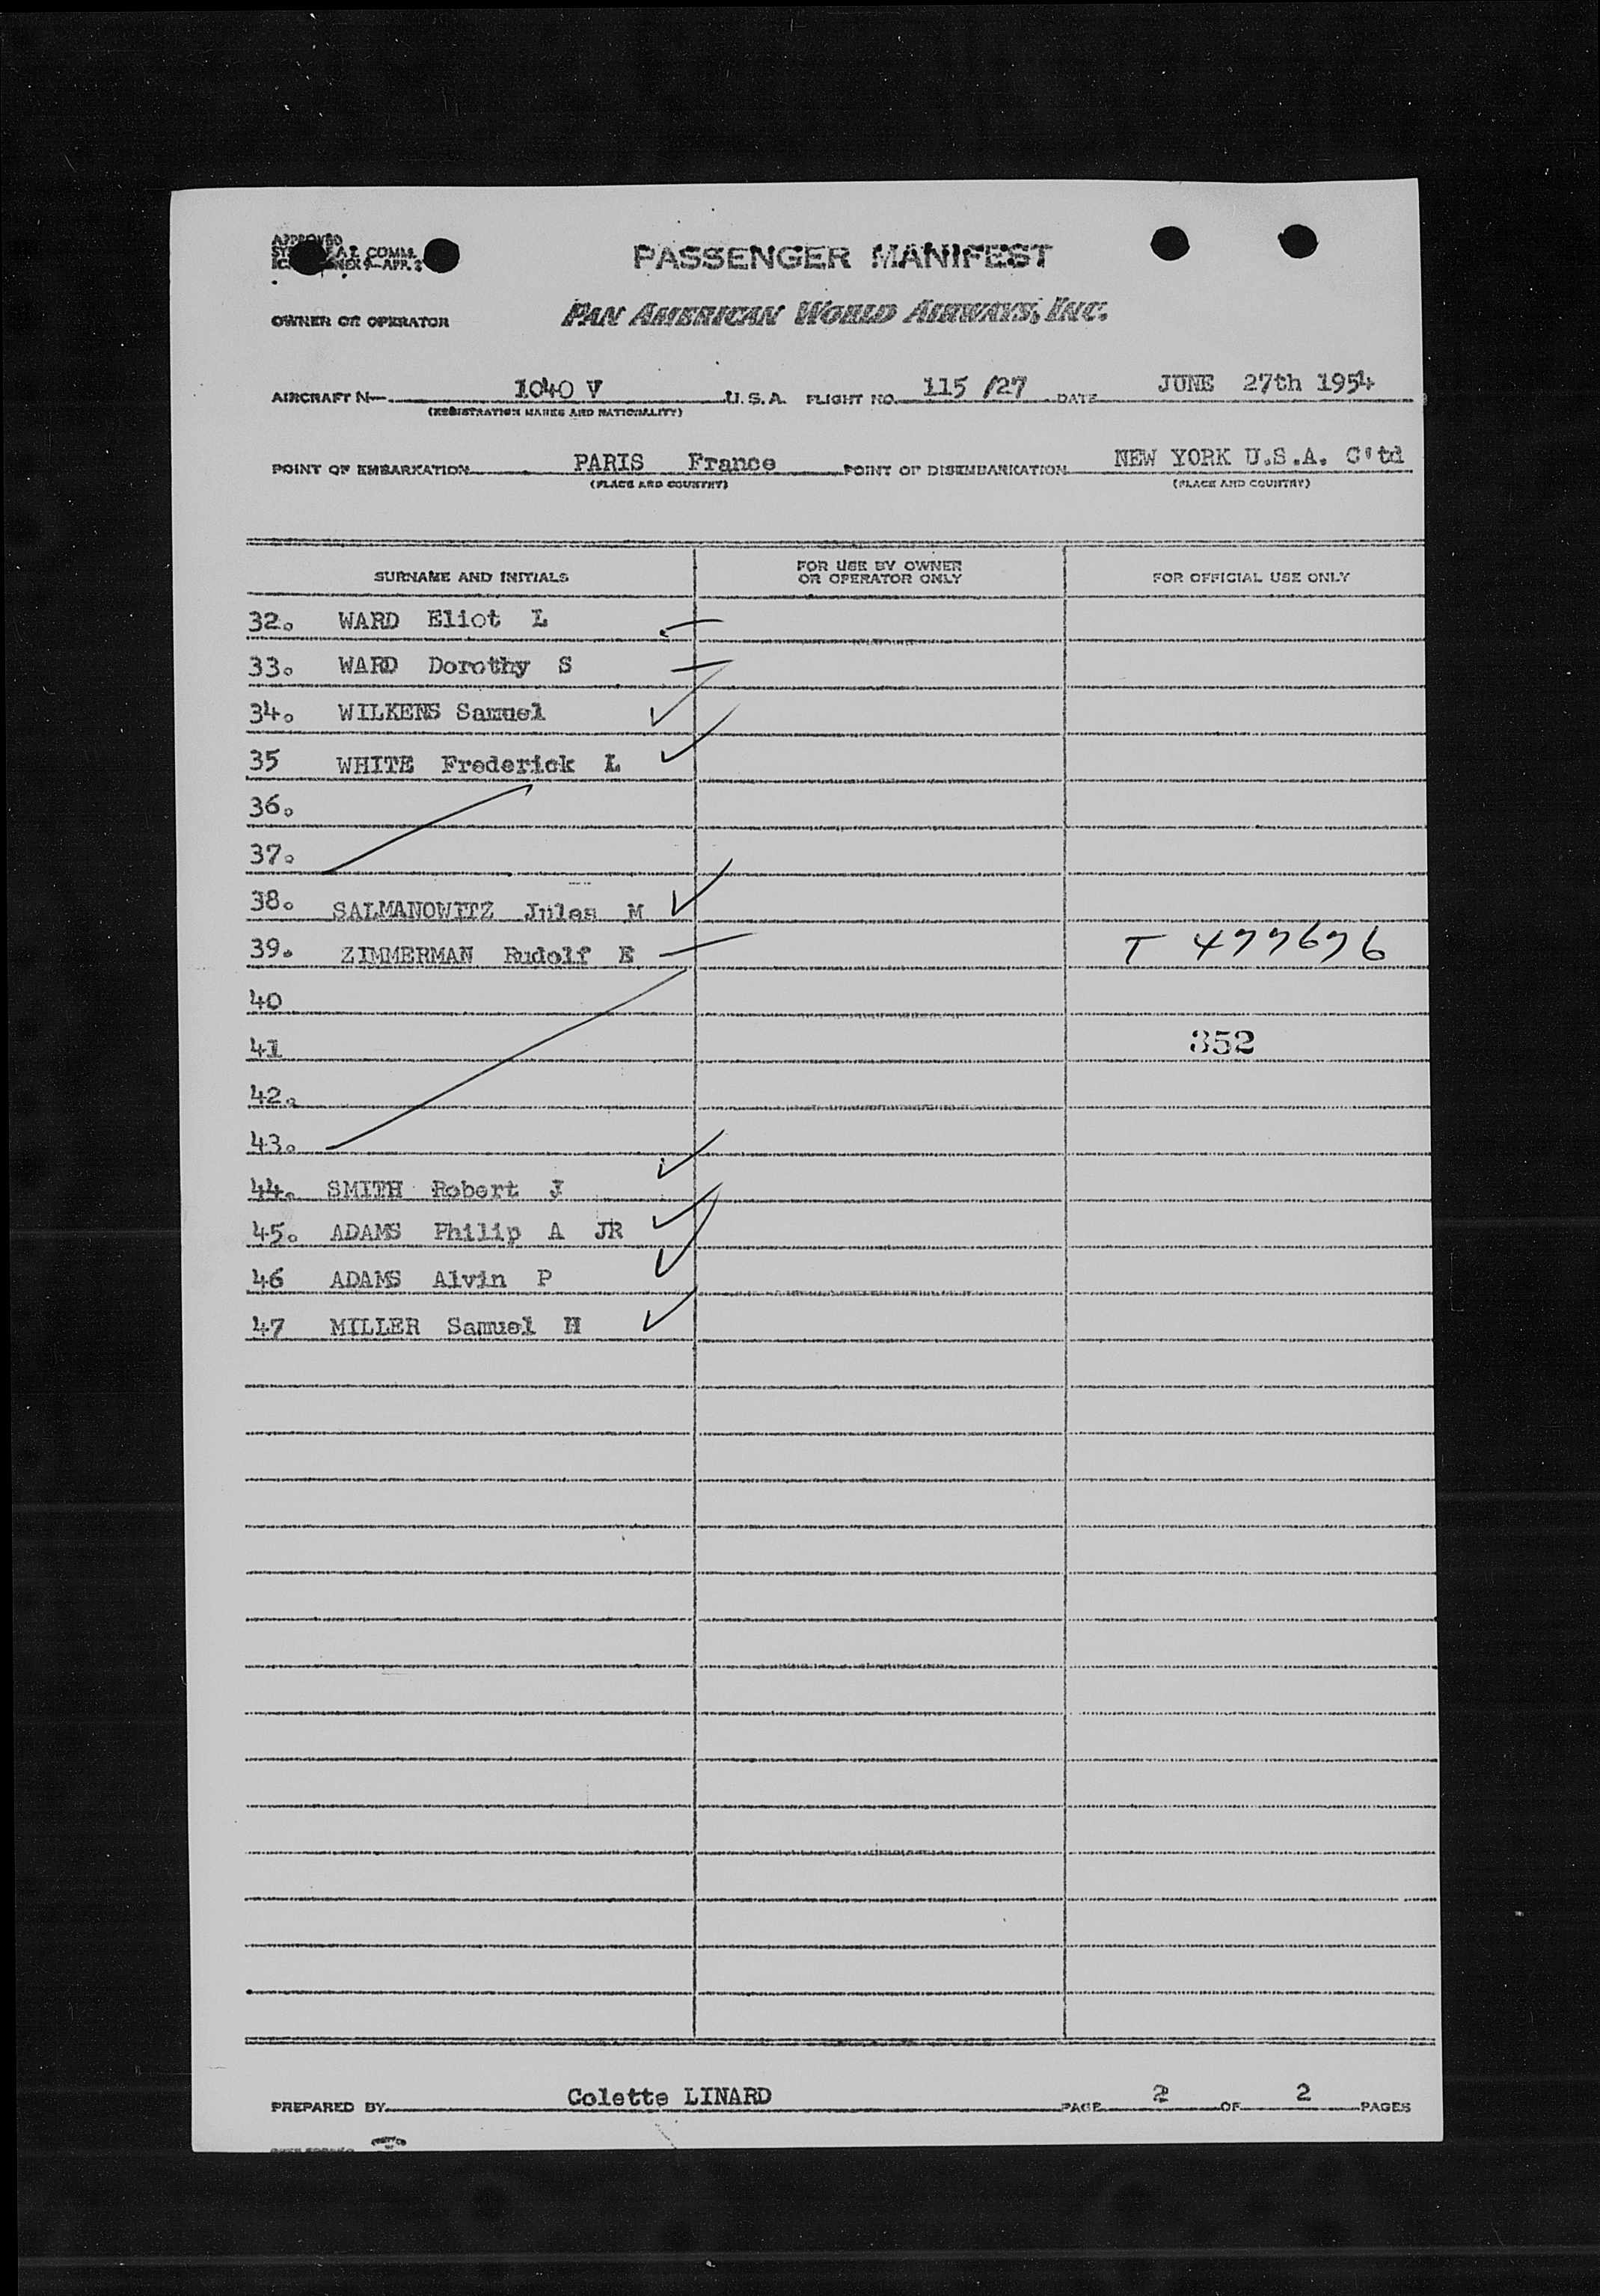 APPROVED
COMM.
APR.
PASSENGER MANIFEST
OWNER OR OPERATOR PAN AMERICAN WORLD AIRWAYS, INC.
AIRCRAFT N— 1040 V U.S.A. FLIGHT NO. 115 /27 DATE JUNE 27th 1954
(REGISTRATION MARKS AND NATIONALITY)
POINT OF EMBARKATION PARIS France POINT OF DISEMBARKATION NEW YORK U.S.A. C'td
(PLACE AND COUNTRY) (PLACE AND COUNTRY)
SURNAME AND INITIALS FOR USE BY OWNER OR OPERATOR ONLY FOR OFFICIAL USE ONLY
32. WARD Eliot L
33. WARD Dorothy S
34. WILKENS Samuel
35 WHITE Frederick L
36.
37.
38. SALMANOWITZ Jules M
39. ZIMMERMAN Rudolf E T 477676
40
41 352
42.
43.
44. SMITH Robert J
45. ADAMS Philip A JR
46 ADAMS Alvin P
47 MILLER Samuel H
PREPARED BY Colette LINARD PAGE 2 OF 2 PAGES